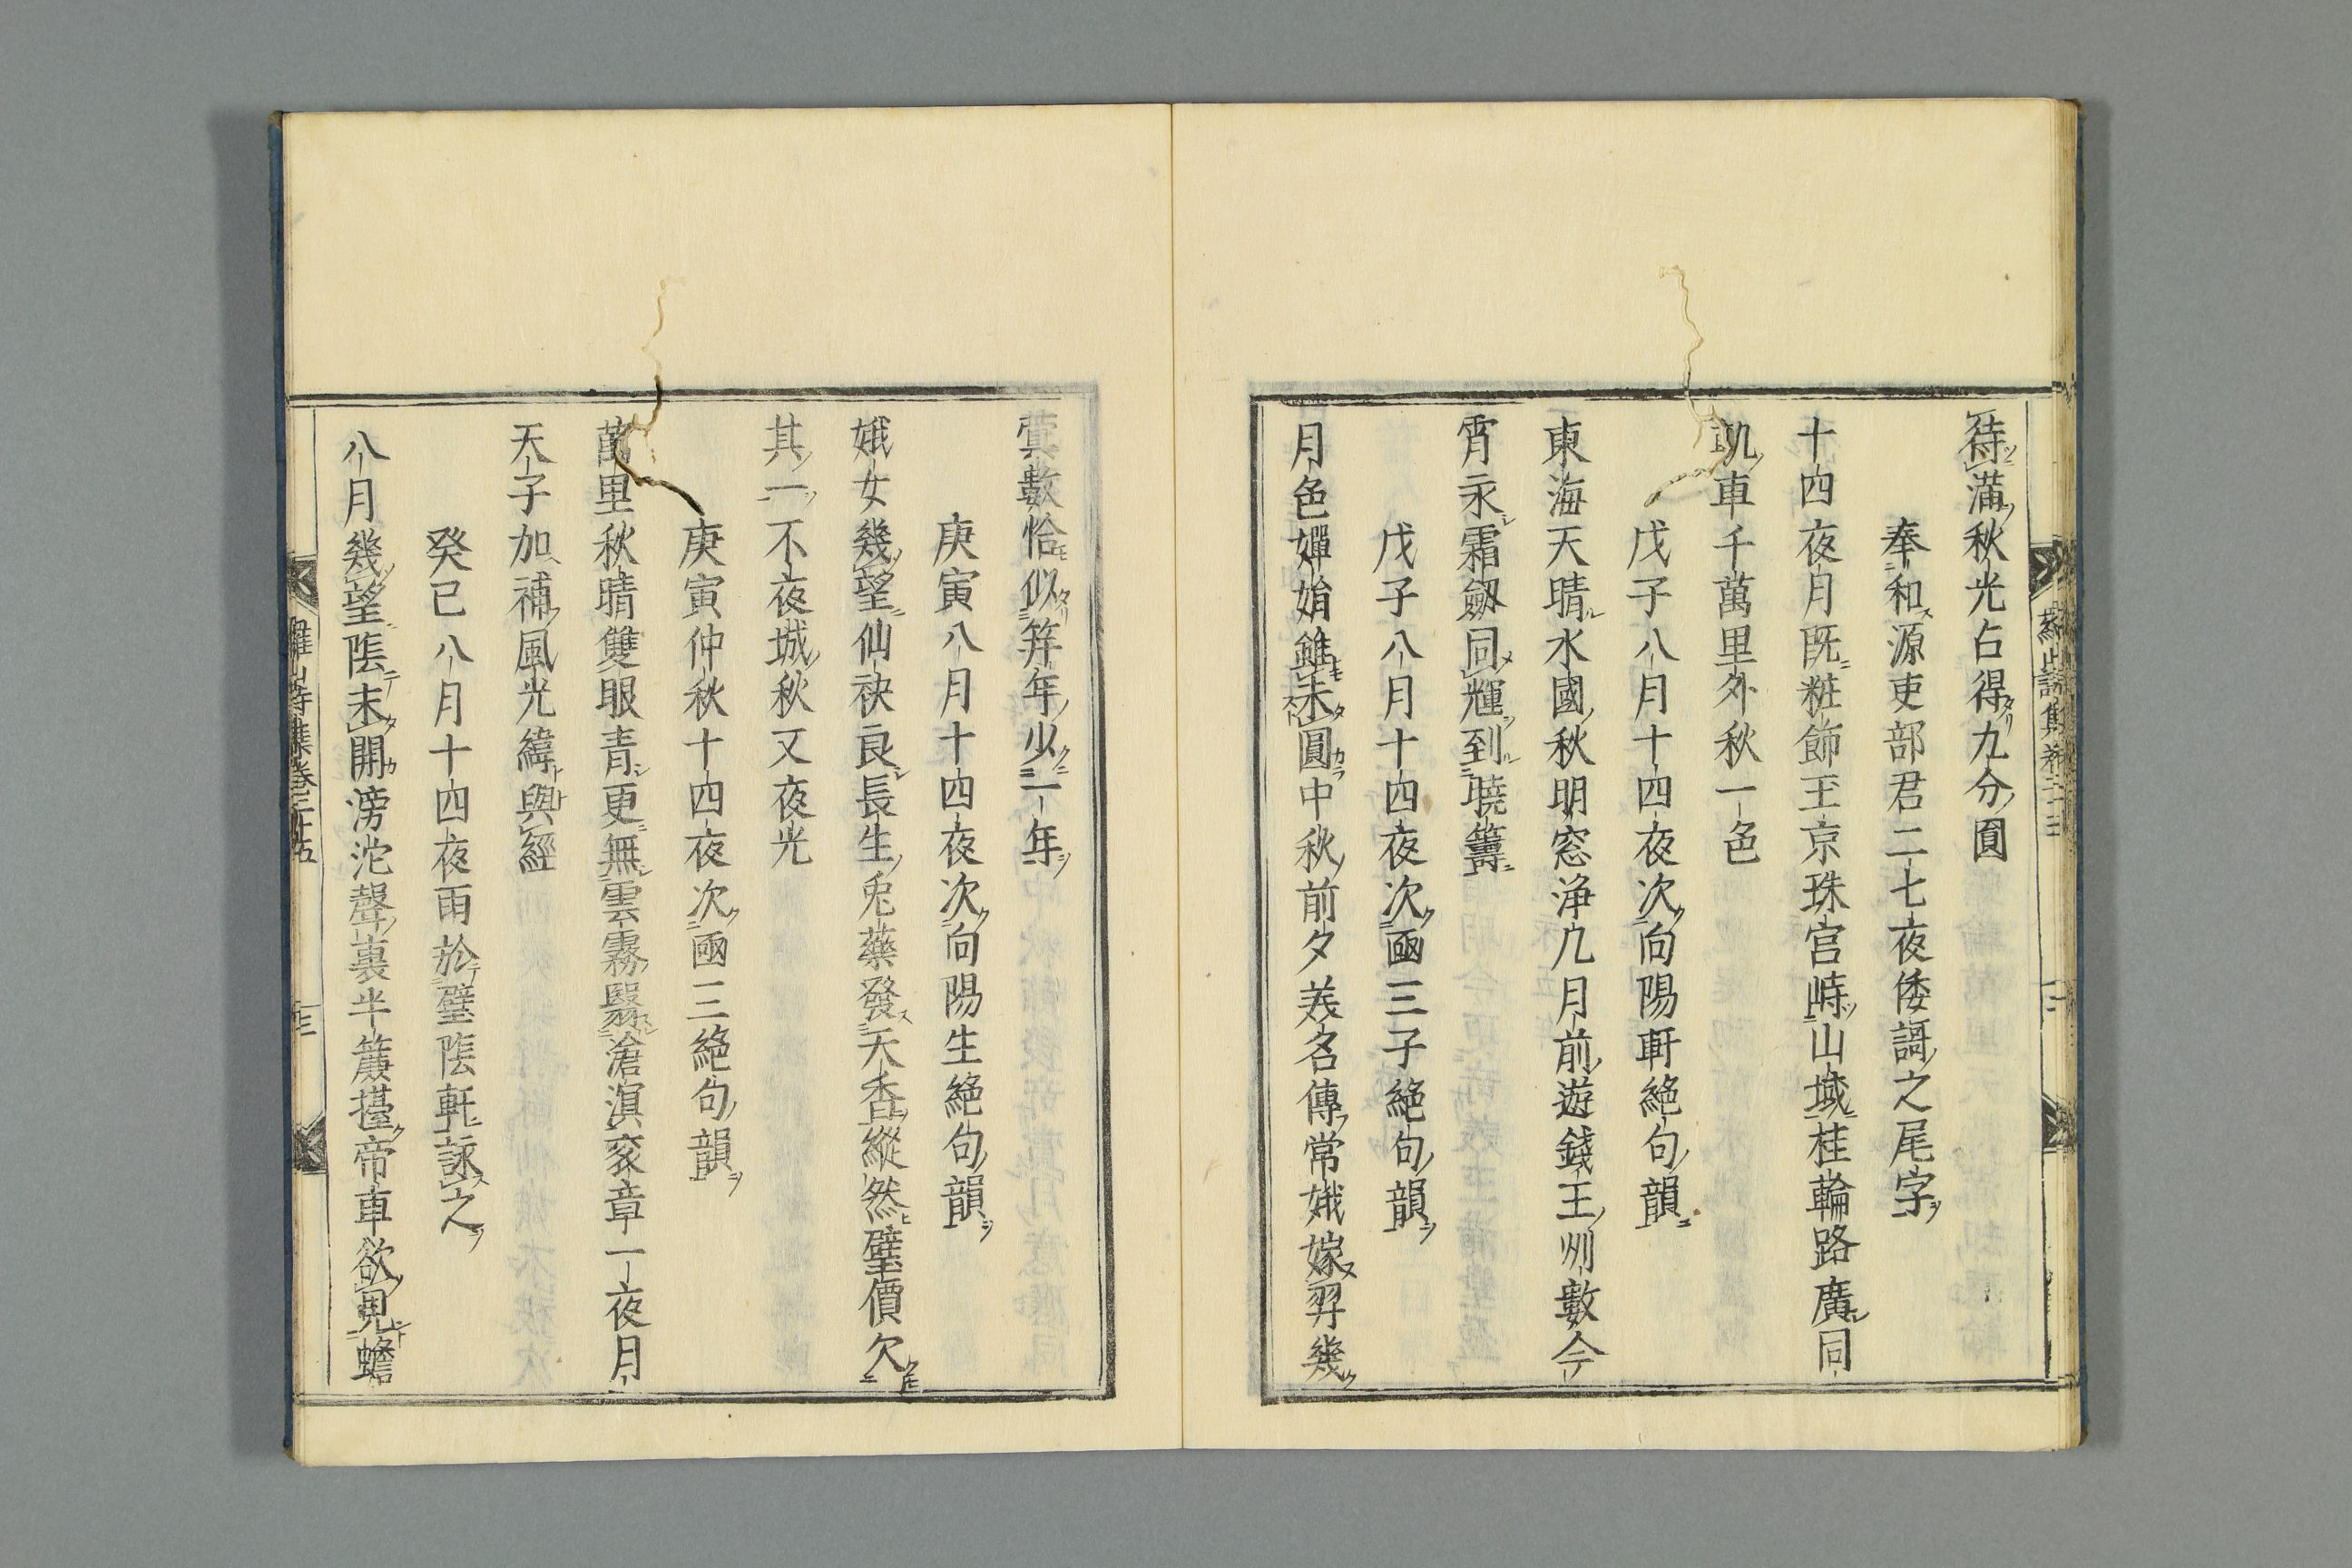 待滿秋光占得九分圓
奉和源吏部君二七夜倭謌之尾字
十四夜月既粧飾王京珠宮峙山城桂輪路廣同
軌車千萬里外秋一色
戊子八月十四夜次向陽軒絕句韻
東海天晴水國秋明窓浄几月前遊錢王州數今
宵永霜劔同輝到曉籌
戊子八月十四夜次凾三子絕句韻
月色嬋娟雖未圓中秋前夕美名傳常娥嫁羿幾
蓂數恰似笄年少一年
庚寅八月十四夜次向陽生絕句韻
娥女幾望仙袂良長生兎藥發天香縱然璧價欠
其一不夜城秋又夜光
庚寅仲秋十四夜次凾三絕句韻
萬里秋晴雙眼青更無雲霧翳滄溟亥章一夜月
天子加補風光緯與經
癸巳八月十四夜雨於璧陰軒詠之
八月幾望陰未開滂沱聲裏半簾擡帝車欲見蟾
羅山詩集卷三十五